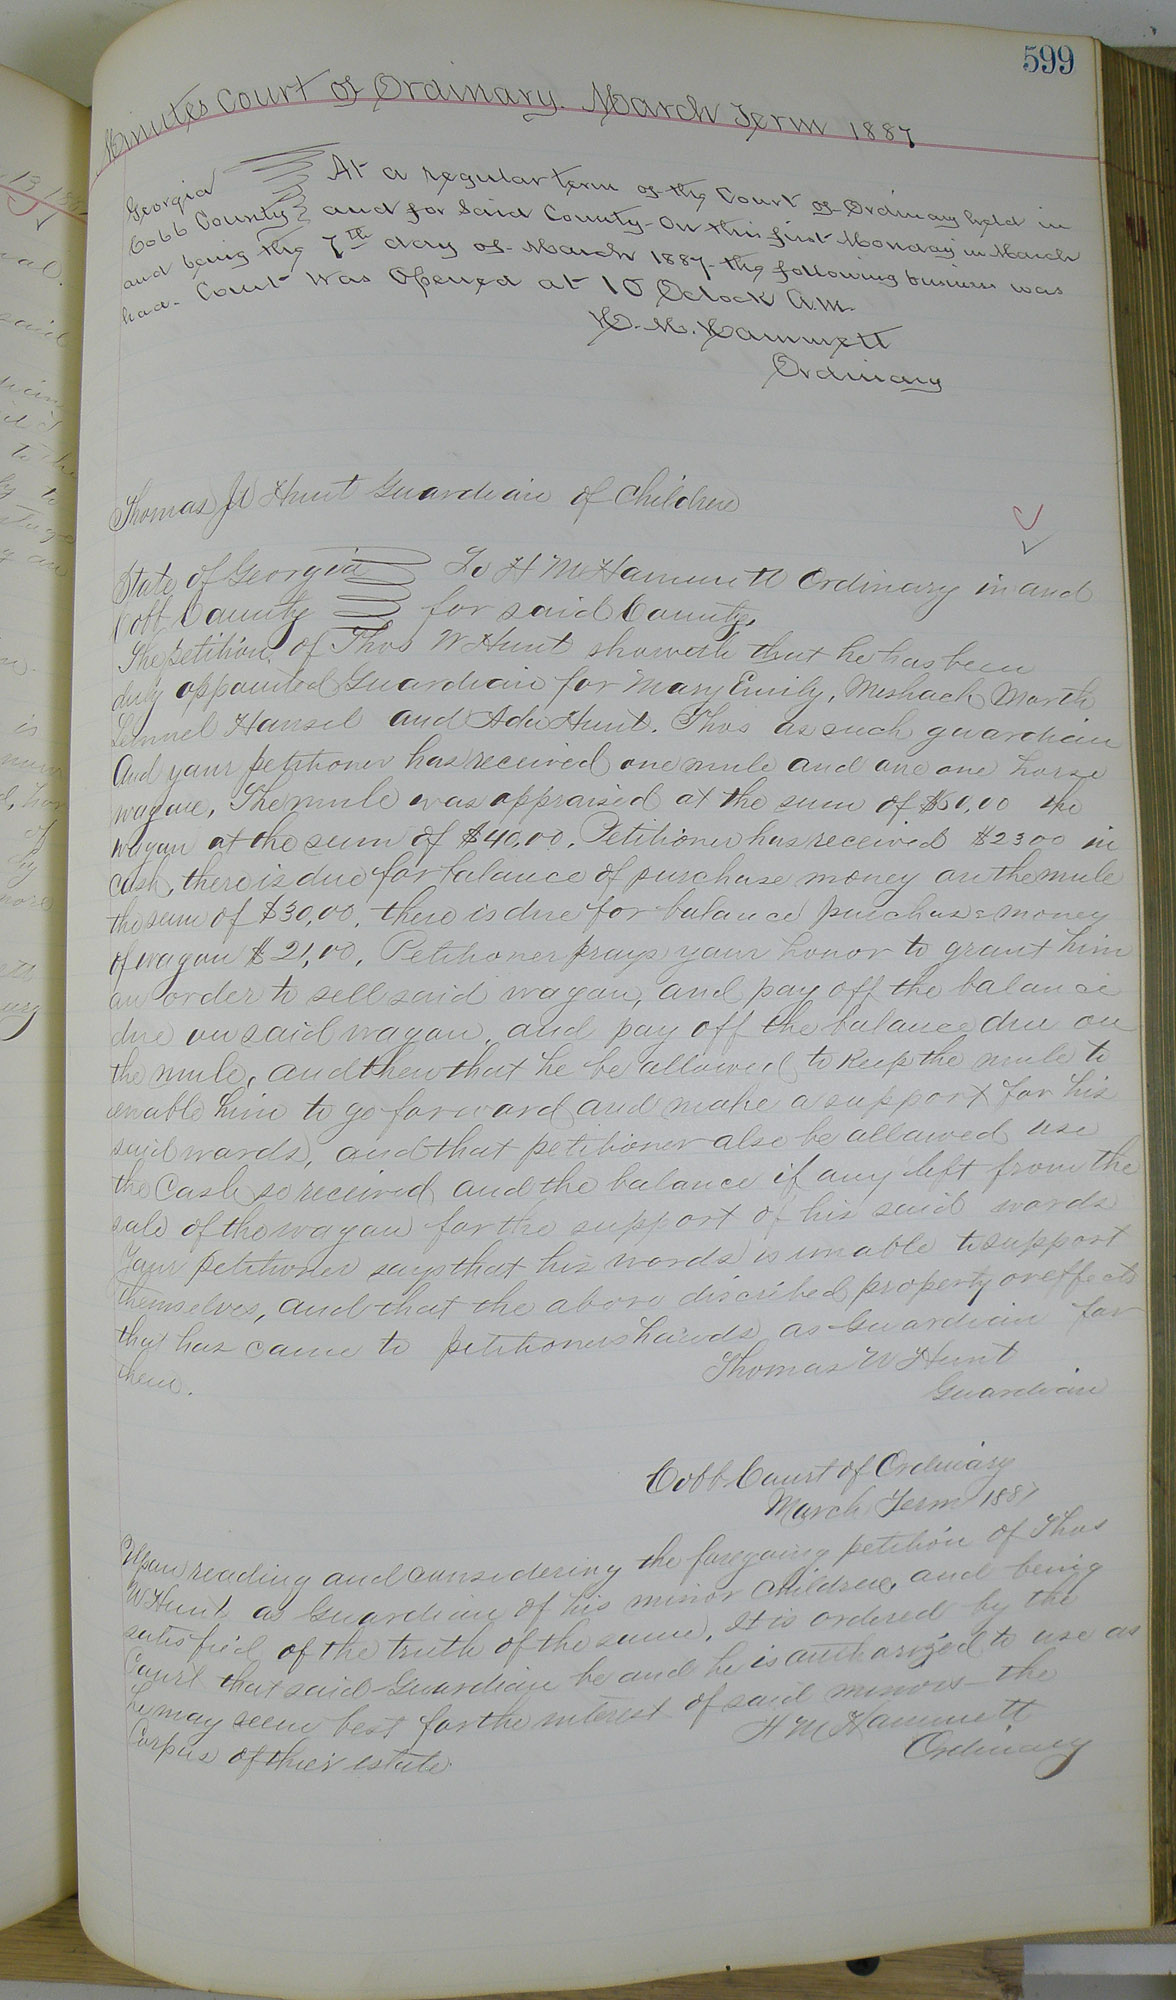 599
Minutes Court of Ordinary. March Term 1887
Georgia At a regular term of the Court of Ordinary held in
Cobb County and for Said County - On this first Monday in March
and being the 7th day of March 1887 - the following business was
had - Court was Opened at 10 Oclock A.M.
H. M. Hammett
Ordinary
Thomas W Hunt Guardian of Children
State of Georgia To H M Hammett Ordinary in and
Cobb County for said County,
The petition of Thos W Hunt showeth that he has been
duly appointed Guardian for Mary Emily, Meshack March
Lemuel Hansel and Ada Hunt. Thos as such guardian
And your petitioner has received one mule and one one horse
wagon, The mule was appraised at the sum of $50,00 the
wagon at the sum of $40,00. Petitioner has received $23 00 in
cash, there is due for balance of purchase money on the mule
the sum of $30,00, there is due for balance purchase money
of wagon $21,00, Petitioner prays your honor to grant him
an order to sell said wagon, and pay off the balance
due on said wagon, and pay off the balance due on
the mule, and then that he be allowed to Keep the mule to
enable him to go forward and make a support for his
said wards, and that petitioner also be allowed use
the Cash so received and the balance if any left from the
sale of the wagon for the support of his said words
Your petitioner says that his words is unable to support
themselves, and that the above discribed property or effects
that has came to petitioners hands as Guardian for
them.
Thomas W Hunt
Guardian
Cobb Court of Ordinary
March Term 1887
Upon reading and considering the foregoing petition of Thos
W Hunt as Guardian of his minor Children, and being
satisfied of the truth of the same, It is ordered by the
Court that said Guardian be and he is authorized to use as
he may seem best for the interest of said minors - the
Corpus of their estate
H M Hammett
Ordinary